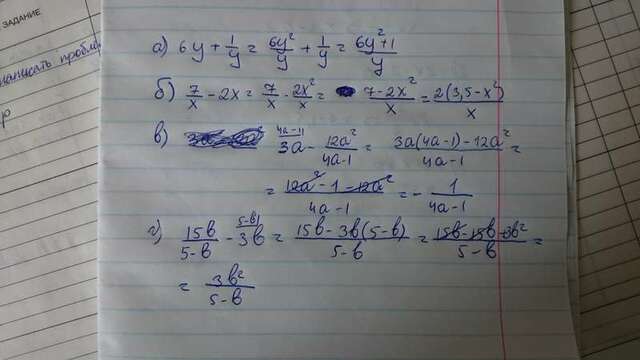 ЗАДАНИЕ
написать пробле
р
а) 6y + 1/y = 6y²/y + 1/y = 6y²+1/y
б) 7/x - 2x = 7/x - 2x²/x = 7-2x²/x = 2(3,5-x²)/x
в) 4a-1) 3a - 12a²/4a-1 = 3a(4a-1)-12a²/4a-1 =
= 12a²-1-12a²/4a-1 = - 1/4a-1
г) 15в/5-в - 5-в) 3в = 15в-3в(5-в)/5-в = 15в-15в+3в²/5-в =
= 3в²/5-в